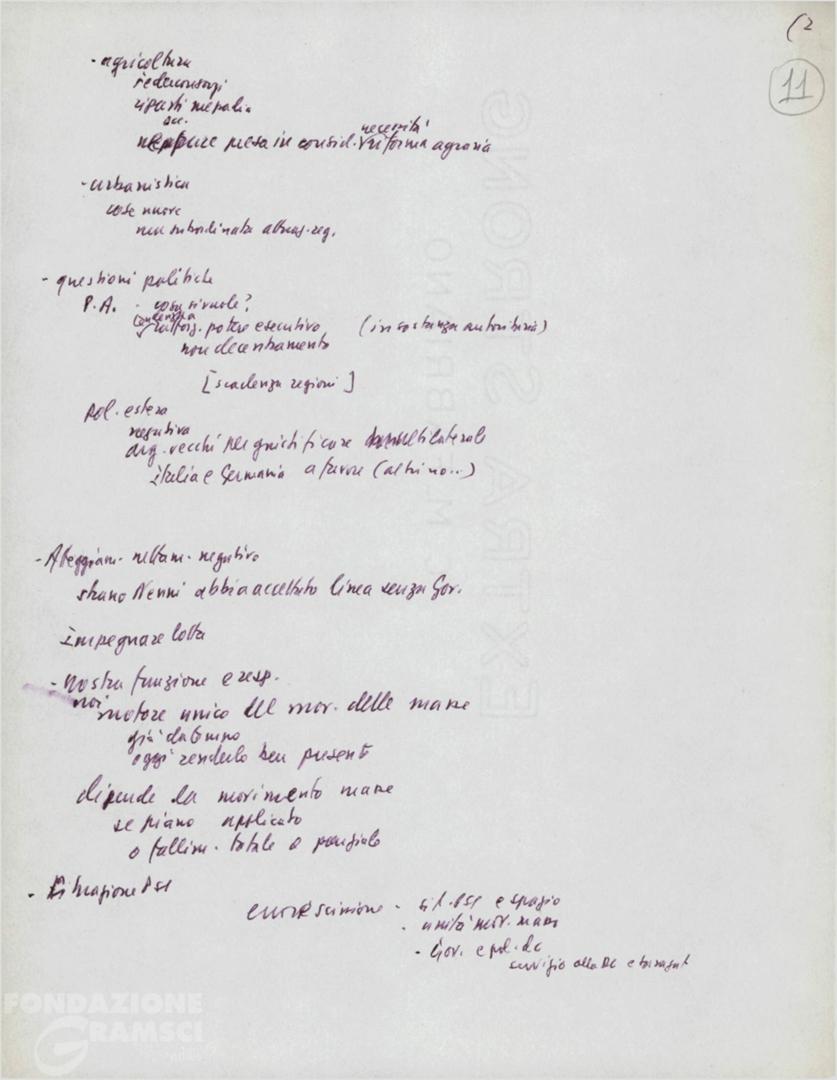 (2
11
- agricoltura
federconsorzi
riparti mezzadria
ecc.
neppure presa in consid. necessità riforma agraria
- urbanistica
cose nuove
non subordinata all'
- questioni politiche
P.A. - cosa si vuole?
tendenza
rafforz. potere esecutivo, (in sostanza autoritaria)
non decentramento
[scadenza regioni]
Pol. estera
negativa
arg. vecchi per giustificare multilaterale
Italia e Germania a favore (altri no..)
- Atteggiam. nettam. negativo
strano Nenni abbia accettato linea senza Gov.
Impegnare lotta
- nostra funzione e resp.
noi motore unico del mov. delle masse
già da tempo
oggi renderlo ben presente
dipende da movimento masse
se piano applicato
o fallim. totale o parziale
- Situazione PSI
errore scissione - sit. PSI e spazio
- unità mov. masse
- Gov. e pol. dc
servizio alla DC e
EXTRA STRONG
FONDAZIONE
GRAMSCI